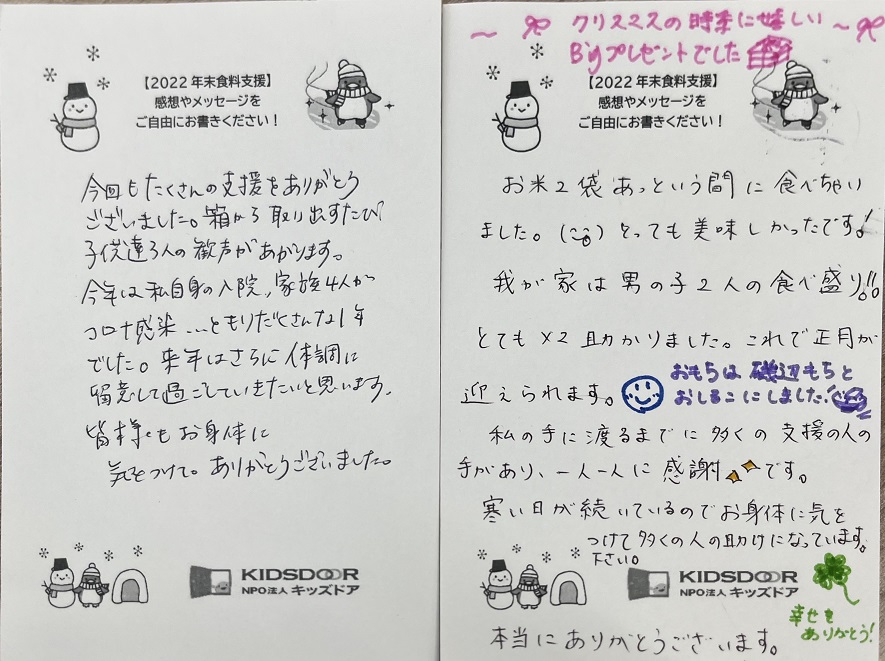 【2022年末食料支援】
感想やメッセージを
ご自由にお書きください！
今回もたくさんの支援をありがとう
ございました。箱から取り出すたび
子供達3人の歓声があがります。
今年は私自身の入院、家族4人が
コロナ感染…ともりだくさんな1年
でした。来年はさらに体調に
留意して過ごしていきたいと思います。
皆様もお身体に
気をつけて。ありがとうございました。
KIDSDOOR
NPO法人キッズドア
～クリスマスの時季に嬉しい～
Bigプレゼントでした
【2022年末食料支援】
感想やメッセージを
ご自由にお書きください！
お米2袋あっという間に食べちゃい
ました。とっても美味しかったです！
我が家は男の子2人の食べ盛り!!
とても×2助かりました。これで正月が
迎えられます。
おもちは磯辺もちと
おしるこにしました！
私の手に渡るまでに多くの支援の人の
手があり、一人一人に感謝です。
寒い日が続いているのでお身体に気を
つけて下さい。多くの人の助けになっています。
KIDSDOOR
NPO法人キッズドア
幸せを
ありがとう！
本当にありがとうございます。